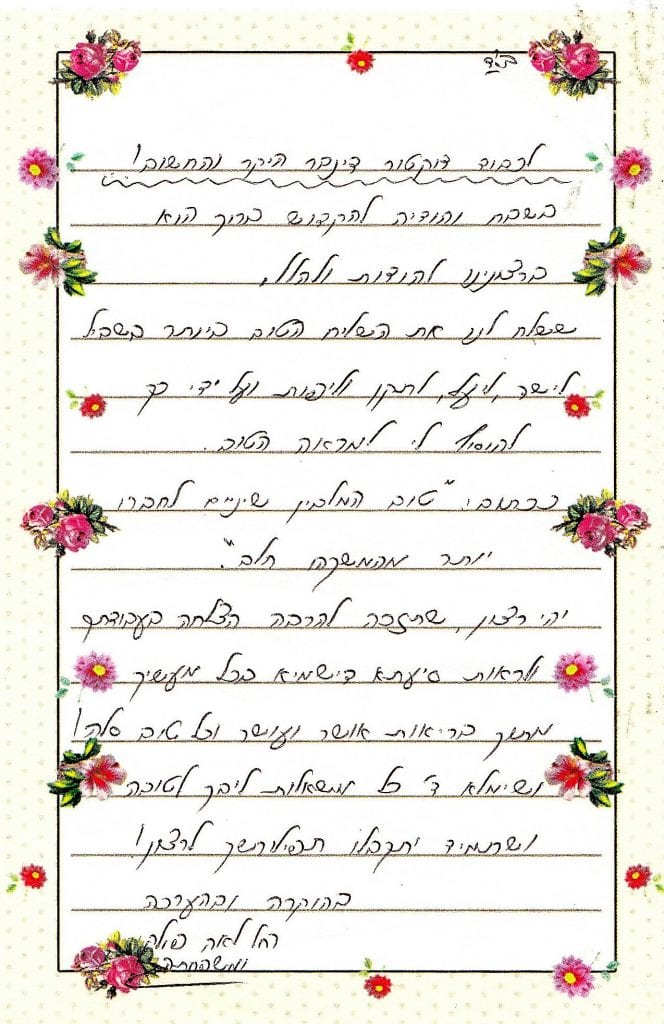 בס"ד
לכבוד דוקטור דינבר היקר והחשוב!
בשבח והודיה להקדוש ברוך הוא
ברצנינו להודות ולהלל,
ששלח לנו את השליח הטוב ביותר בשביל
לישר, ליעל, לתקן וליפות ועל ידי כך
להוסיף לי למראה הטוב.
ככתוב: "טוב המלבין שיניים לחברו
יותר מהמשקהו חלב".
יהי רצון, שתזכה להרבה הצלחה בעבודתך
ולראות סיעתא דישמיא בכל מעשיך
מתוך בריאות אושר ועושר וכל טוב סלה!
ושימלא ד' כל משאלות ליבך לטובה
ושתמיד יתקבלו תפילותיך לרצון!
בהוקרה ובהערכה
רחל לאה
ומשפחתה